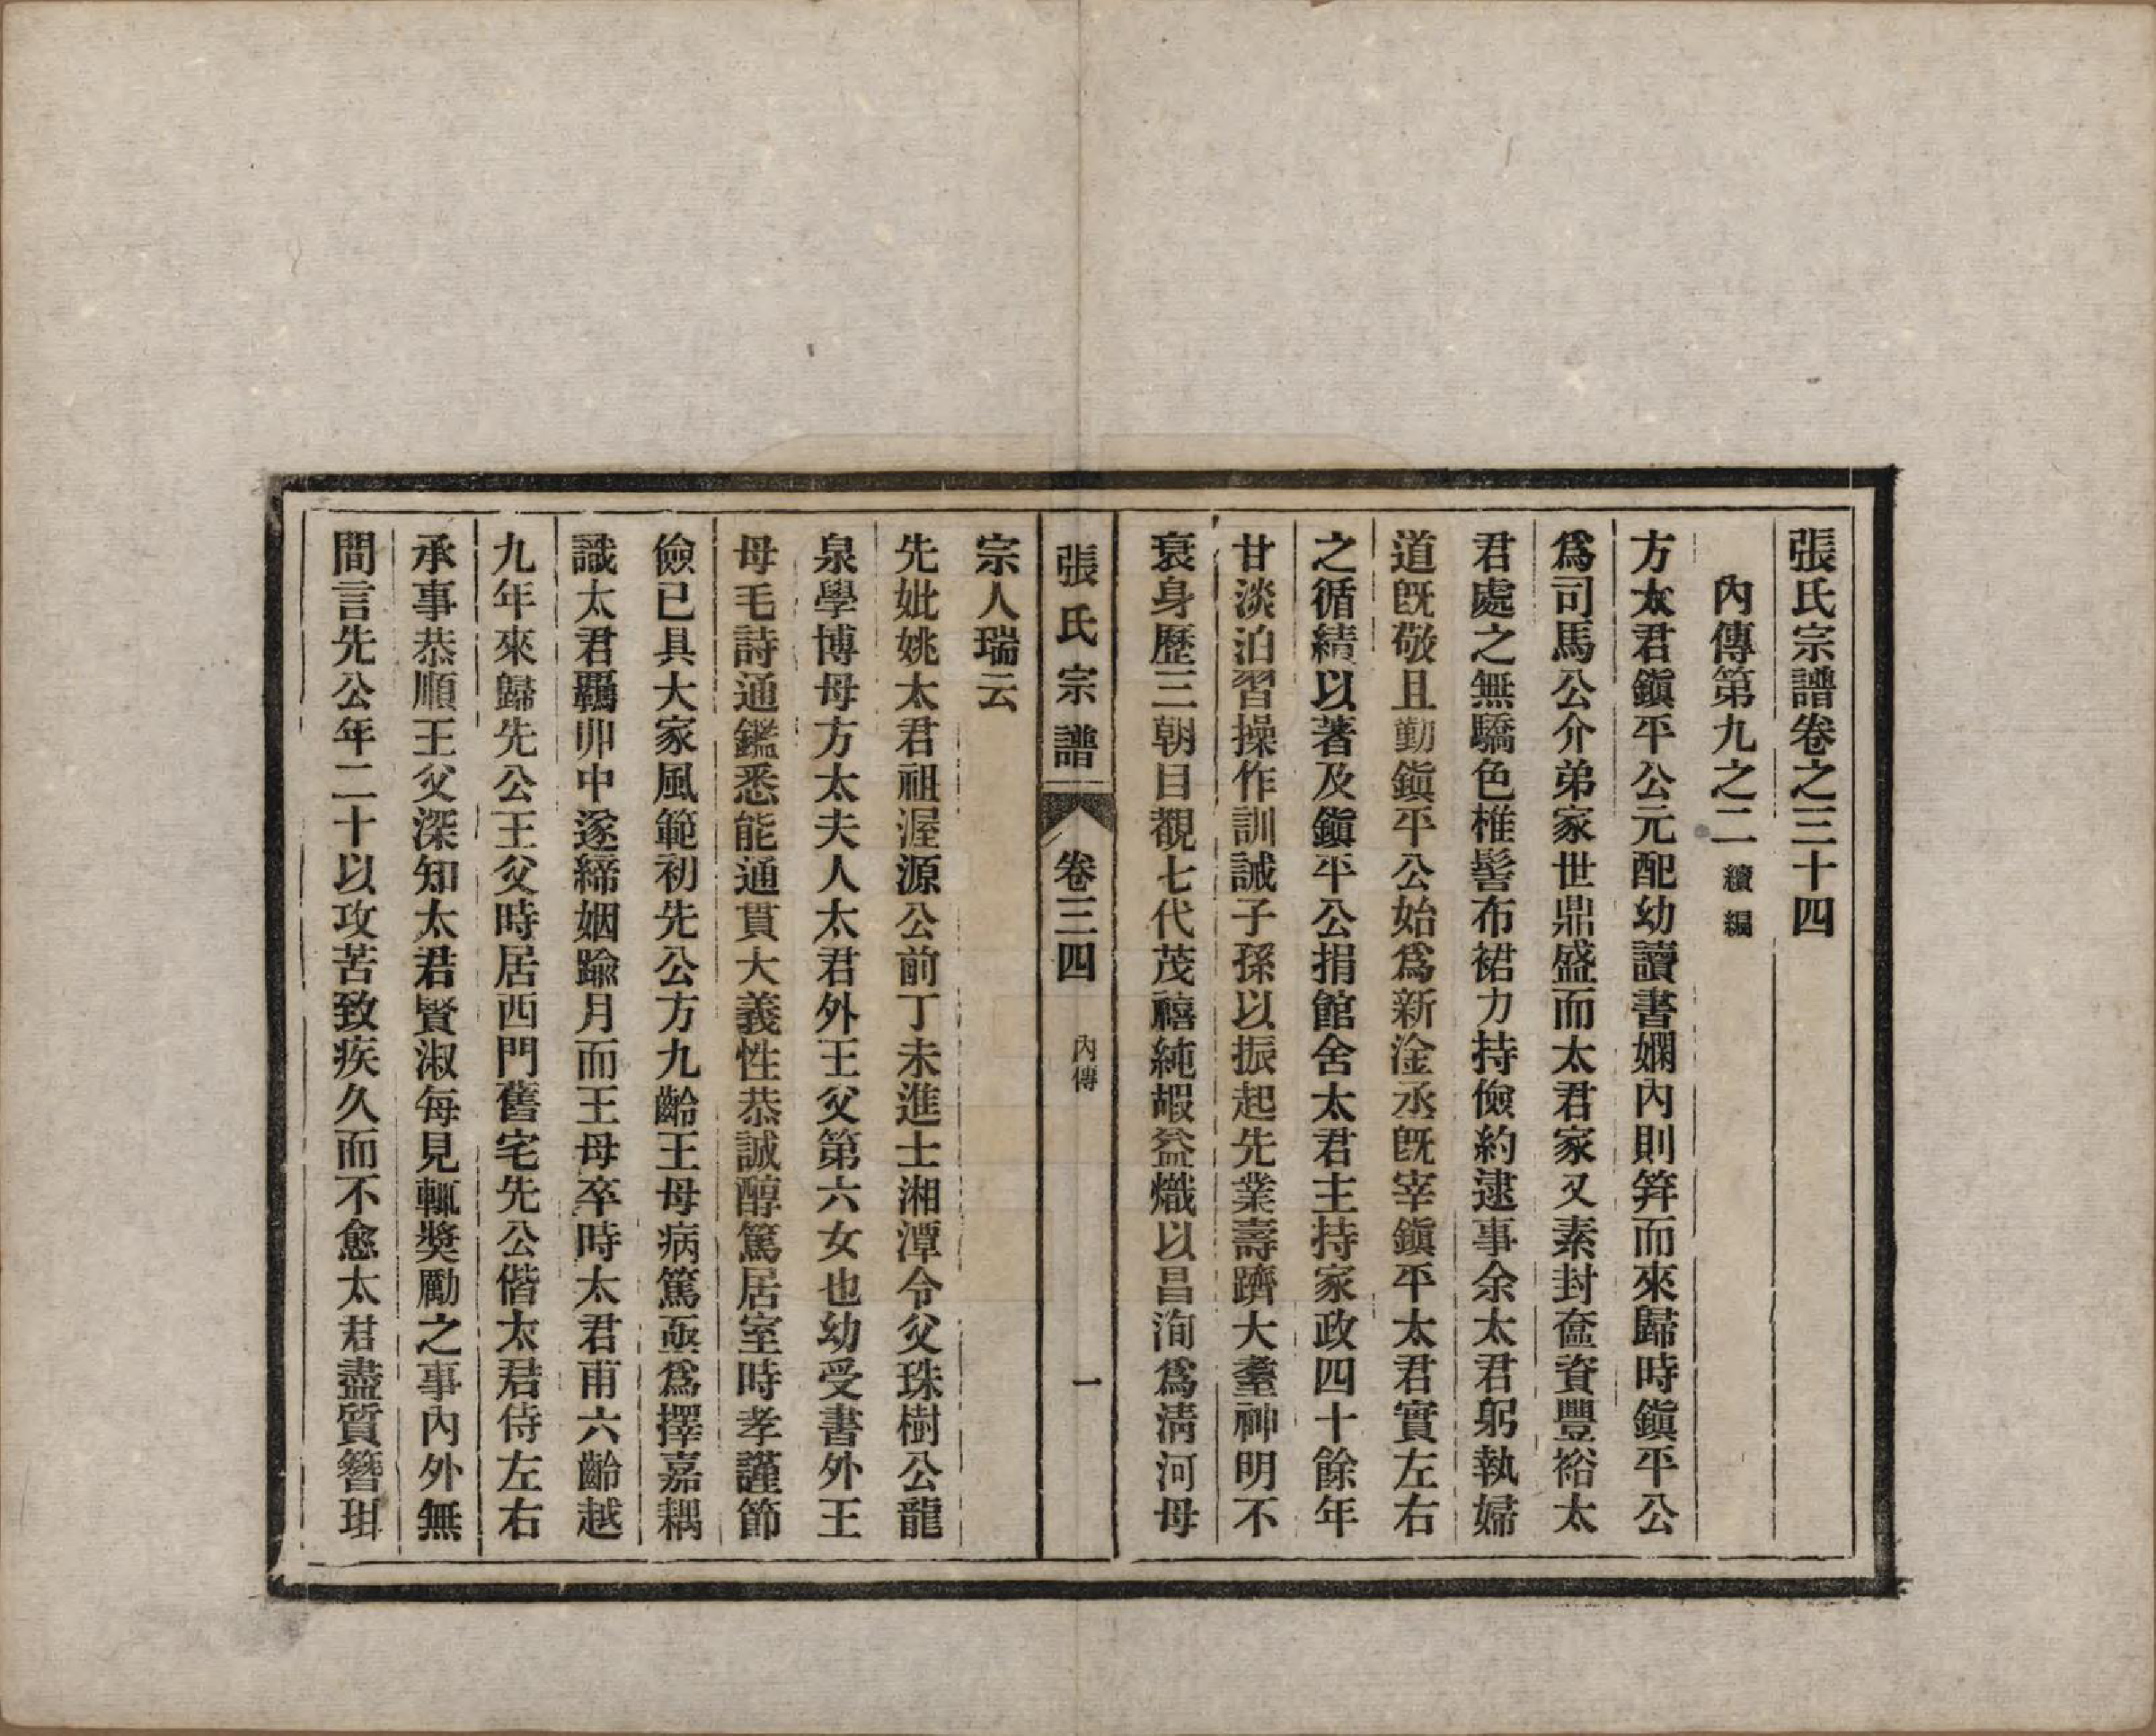 張氏宗譜卷之三十四
內傳第九之二續編
方太君鎭平公元配幼讀書嫻內則笄而來歸時鎭平公
爲司馬公介弟家世鼎盛而太君家又素封奩資豐裕太
君處之無驕色椎髻布裙力持儉約逮事余太君躬執婦
道旣敬且勤鎭平公始爲新淦丞旣宰鎭平太君實左右
之循績以著及鎭平公捐館舍太君主持家政四十餘年
甘淡泊習操作訓誡子孫以振起先業壽躋大耋神明不
衰身歷三朝目觀七代茂禧純嘏益熾以昌洵爲淸河母
張氏宗譜
卷三四
內傳
一
宗人瑞云
先妣姚太君祖渥源公前丁未進士湘潭令父珠樹公龍
泉學博母方太夫人太君外王父第六女也幼受書外王
母毛詩通鑑悉能通貫大義性恭誠醇篤居室時孝謹節
儉已具大家風範初先公方九齡王母病篤亟爲擇嘉耦
識太君羈丱中遂締姻踰月而王母卒時太君甫六齡越
九年來歸先公王父時居西門舊宅先公偕太君侍左右
承事恭順王父深知太君賢淑每見輒獎勵之事內外無
間言先公年二十以攻苦致疾久而不愈太君盡質簪珥